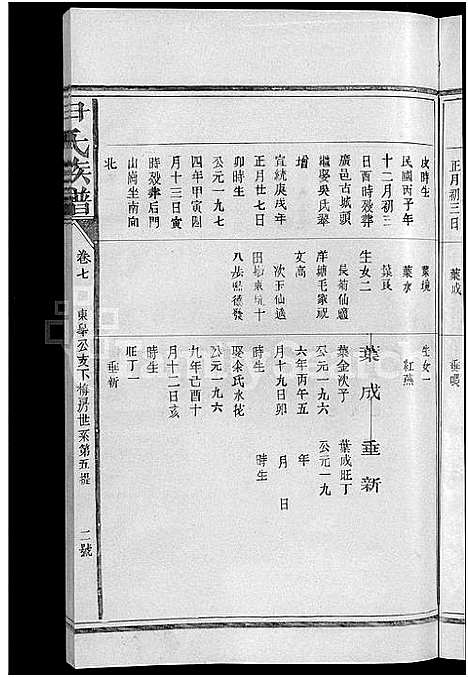 正月初三日
葉成
垂暖
皮時生
民國丙子年
十二月初三
日酉時歿葬
廣邑古城頭
繼娶吳氏翠
增
宣統庚戌年
正月廿七日
卯時生
公元一九七
四年甲寅國
月十三日寅
時歿葬后門
山崗坐南向
北
葉水
生女二
長菊仙適
洋塘毛家祝
文高
次玉仙適
八步熙德發
生女一
紅燕
葉成
垂新
葉金次子
公元一九六
六年丙午五
月十九日卯
時生
娶余氏水花
公元一九六
九年己酉十
月十二日亥
時生
旺丁一
垂新
葉成旺丁
公元一九
年
月 日
時生
尹氏族譜
卷七
東皋公支下梅房世系第五提
二號